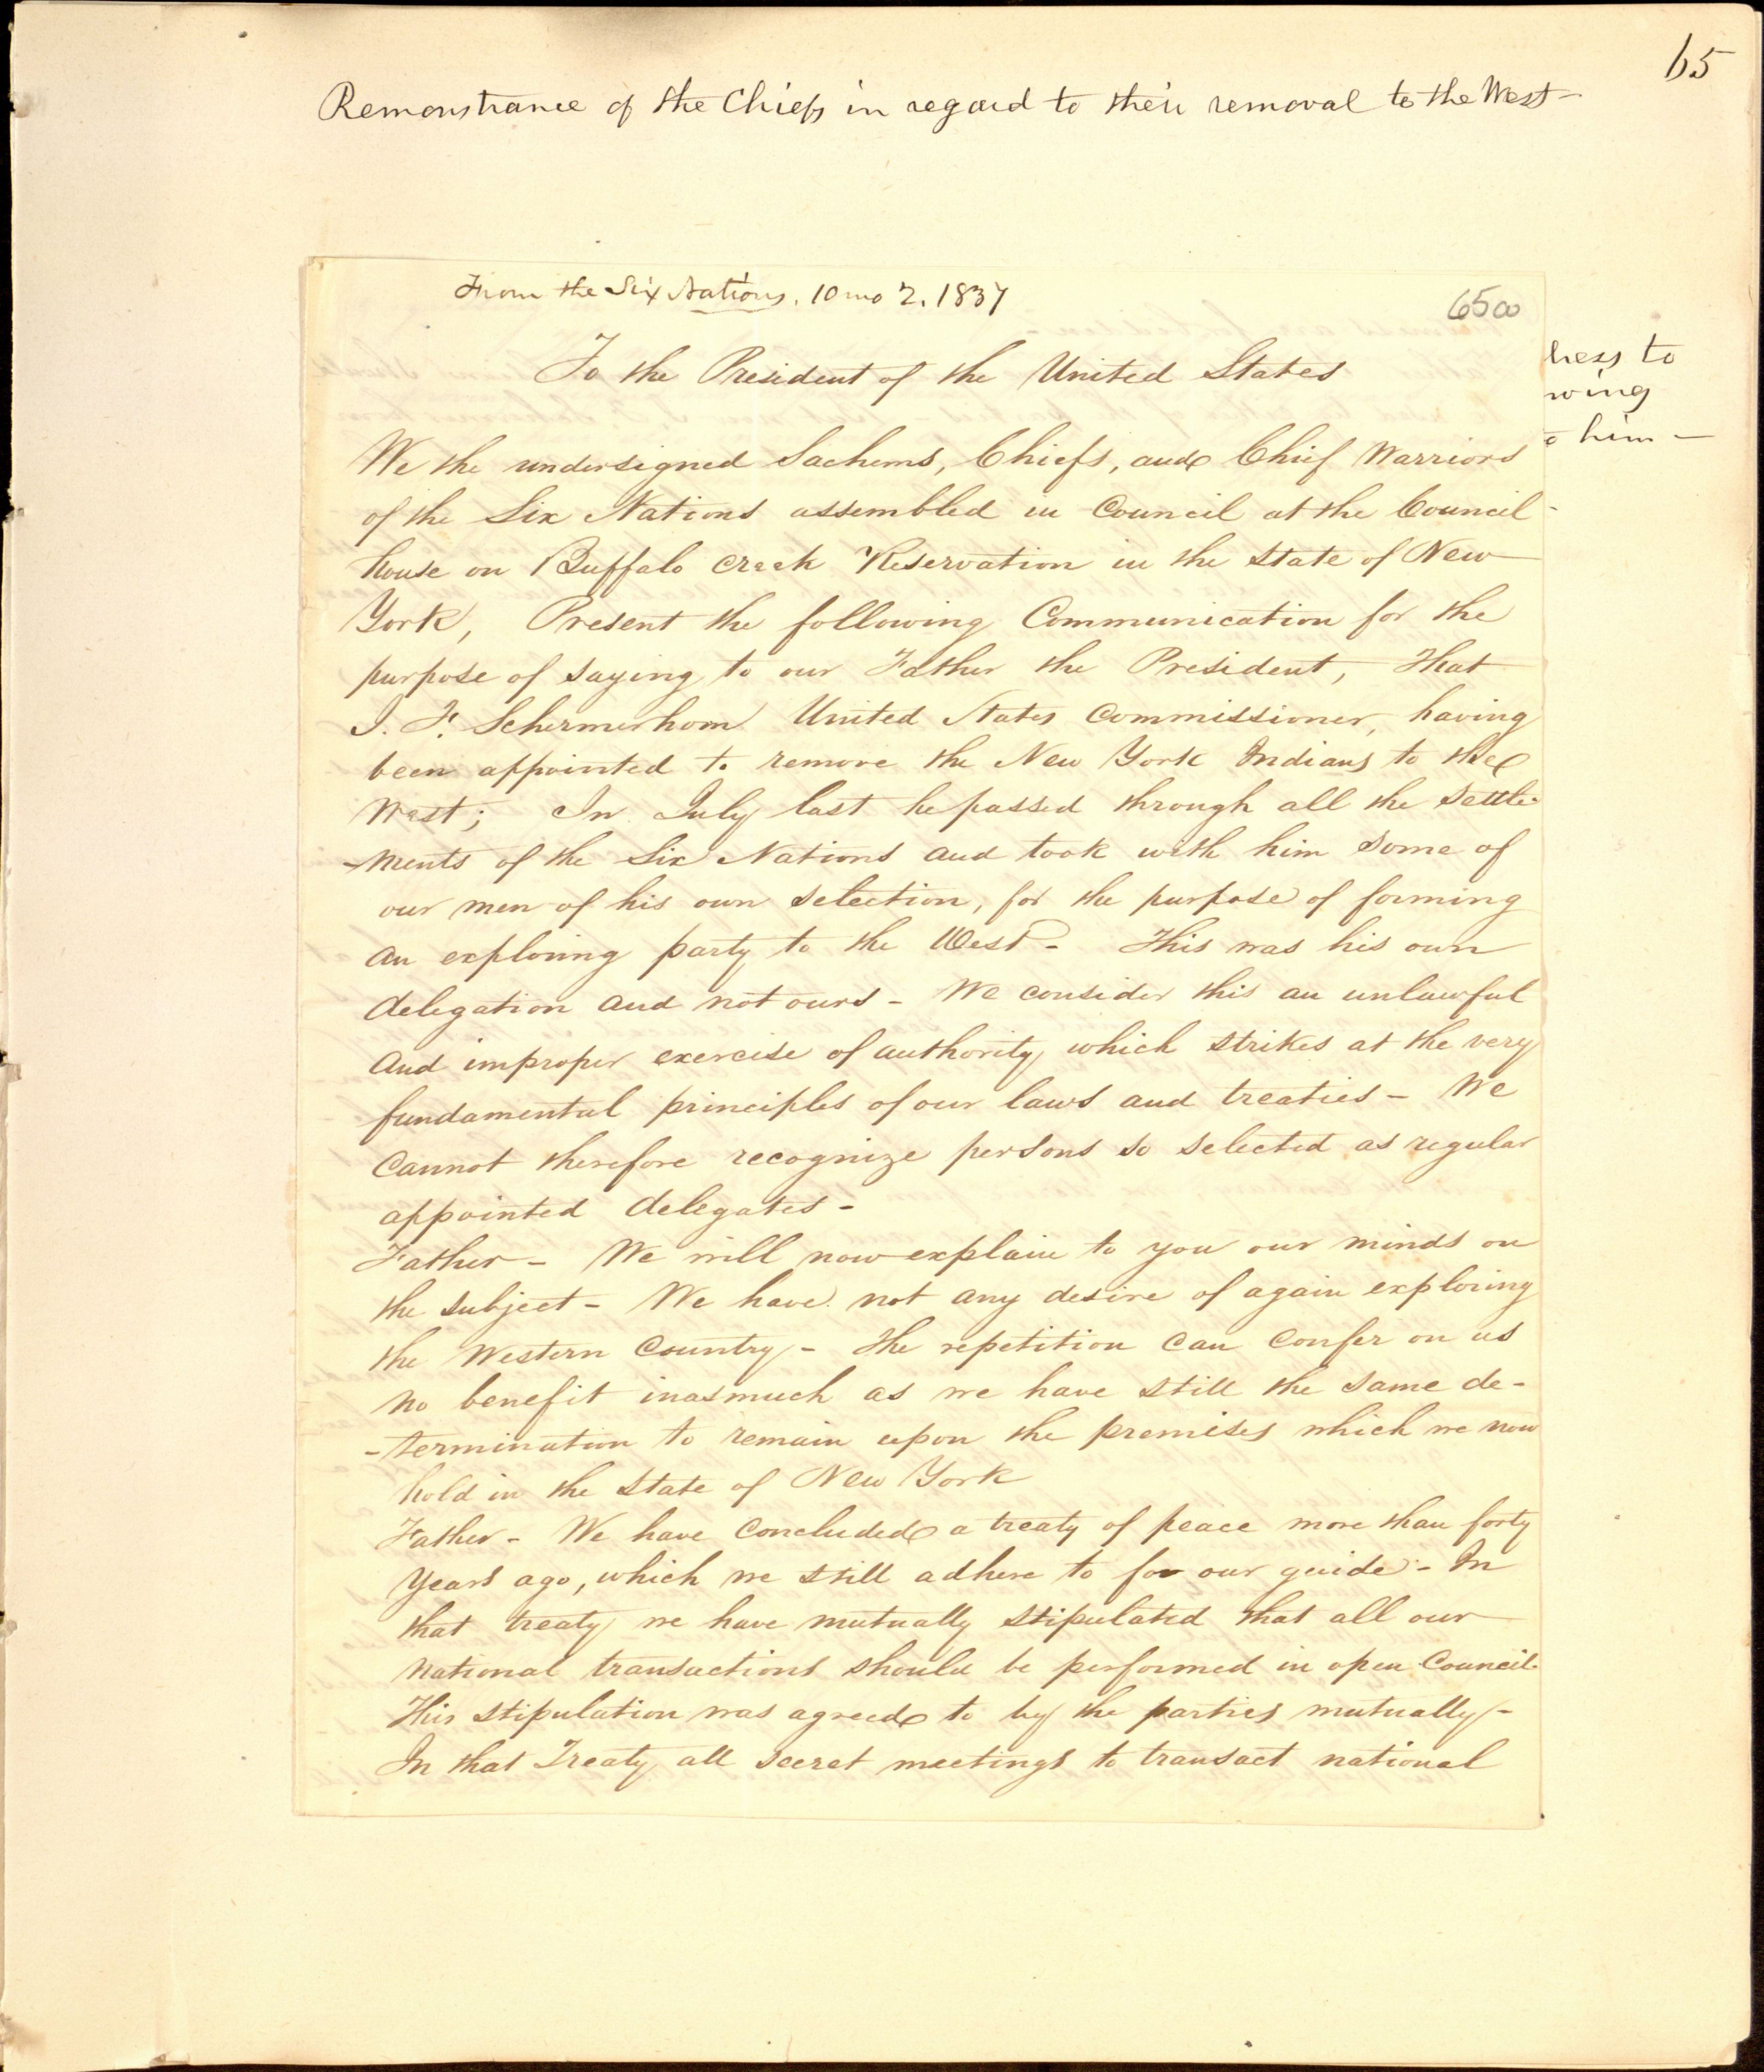 65
Remonstrance of the Chiefs in regard to their removal to the West-
From the Six Nations. 10 mo 2. 1837
65
To the President of the United States
ness to
wing
him -
We the undersigned Sachems, Chiefs, and Chief Warriors
of the Six Nations assembled in Council at the Council-
house on Buffalo creek Reservation in the State of New
York, Present the following Communication for the
purpose of saying to our Father the President, That
J. F. Schermerhorn United States Commissioner, having
been appointed to remove the New York Indians to the
West; In July last he passed through all the Settle-
-ments of the Six Nations and took with him some of
our men of his own selection, for the purpose of forming
an exploring party to the West - This was his own
delegation and not ours - We consider this an unlawful
and improper exercise of authority which strikes at the very
fundamental principles of our laws and treaties - We
Cannot therefore recognize persons so selected as regular
appointed delegates -
Father - We will now explain to you our minds on
the subject - We have not any desire of again exploring
the Western Country - the repetition can confer on us
no benefit inasmuch as we have still the same de-
-termination to remain upon the premises which we now
hold in the State of New York
Father - We have concluded a treaty of peace more than forty
Years ago, which we still adhere to for our guide - In
that treaty we have mutually stipulated that all our
national transactions should be performed in open Council.
This stipulation was agreed to by the parties mutually -
In that Treaty all secret meetings to transact national